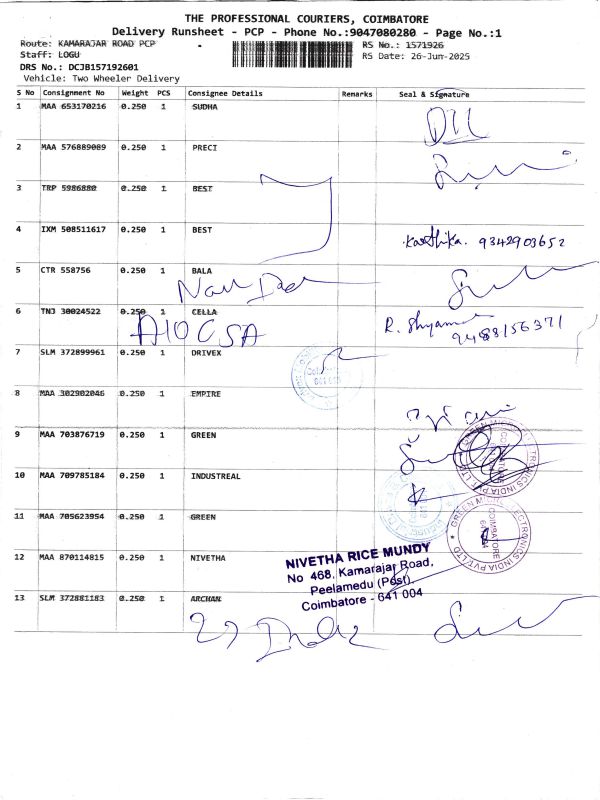 THE PROFESSIONAL COURIERS, COIMBATORE
Delivery Runsheet - PCP - Phone No.:9047080280 - Page No.:1
Route: KAMARAJAR ROAD PCP
RS No.: 1571926
Staff: LOGU
RS Date: 26-Jun-2025
DRS No.: DCJB157192601
Vehicle: Two Wheeler Delivery
S No Consignment No Weight PCS Consignee Details Remarks Seal & Signature
1 MAA 653170216 0.250 1 SUDHA
2 MAA 576889089 0.250 1 PRECI
3 TRP 5986880 0.250 1 BEST
4 IXM 508511617 0.250 1 BEST
Karthika. 9342903652
5 CTR 558756 0.250 1 BALA
6 TNJ 30024522 0.250 1 CELLA
R. Shyam 9488156371
7 SLM 372899961 0.250 1 DRIVEX
8 MAA 302902046 0.250 1 EMPIRE
9 MAA 703876719 0.250 1 GREEN
10 MAA 709785184 0.250 1 INDUSTREAL
11 MAA 705623954 0.250 1 GREEN
GREEN MICRO ELECTRONICS INDIA PVT LTD
COIMBATORE
12 MAA 870114815 0.250 1 NIVETHA
NIVETHA RICE MUNDY
No 468, Kamarajar Road,
Peelamedu (Post),
Coimbatore - 641 004
13 SLM 372881183 0.250 1 ARCHAN